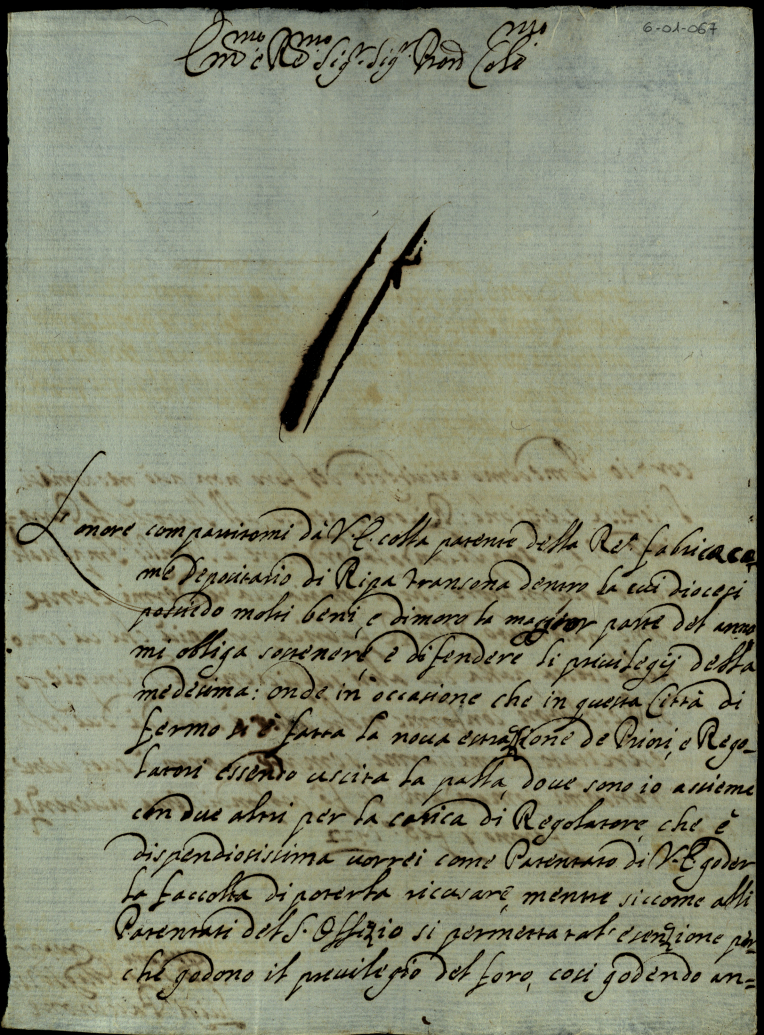 6-01-067
Em.mo e R.mo Sig.r Sig.r Pron Col.mo
L'onore compartitomi da V.E. colla patente della Re: fabrica co=
me Depositario di Ripa transona dentro la cui diocesi
possiedo molti beni, e dimoro la maggior parte del anno
mi obliga sostenere, e difendere li privilegij della
medesima: onde in occasione che in questa Città di
fermo si è fatta la nova estrazione de Priori, e Rego=
latori essendo uscita la palla, dove sono io assieme
con due altri per la carica di Regolatore, che è
dispendiosissima vorrei come Patentato di V.E. goder
la facoltà di poterla ricusare, mentre siccome alli
Patentati del S. Offizio si permetta tal' esenzione per=
che godono il privilegio del foro, così godendo an=